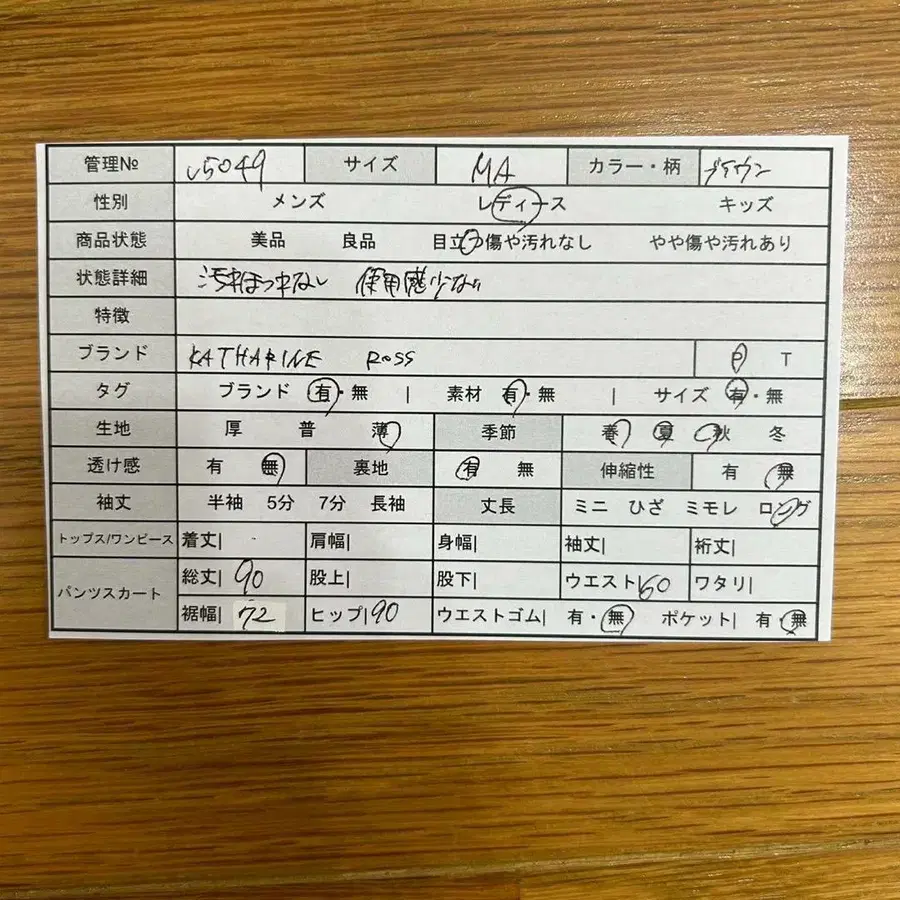 管理№ v5049 サイズ MA カラー・柄 ブラウン
性別 メンズ レディース キッズ
商品状態 美品 良品 目立つ傷や汚れなし やや傷や汚れあり
状態詳細 汚れほつれなし 使用感少ない
特徴
ブランド KATHARINE ROSS P T
タグ ブランド 有・無 | 素材 有・無 | サイズ 有・無
生地 厚 普 薄 季節 春 夏 秋 冬
透け感 有 無 裏地 有 無 伸縮性 有 無
袖丈 半袖 5分 7分 長袖 丈長 ミニ ひざ ミモレ ロング
トップス/ワンピース 着丈| 肩幅| 身幅| 袖丈| 裄丈|
パンツスカート 総丈| 90 股上| 股下| ウエスト| 60 ワタリ|
裾幅| 72 ヒップ| 90 ウエストゴム| 有・無 ポケット| 有・無